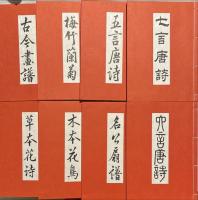 七言唐詩
五言唐詩
梅竹蘭菊
古今畫譜
六言唐詩
名公扇譜
木本花鳥
草本花詩